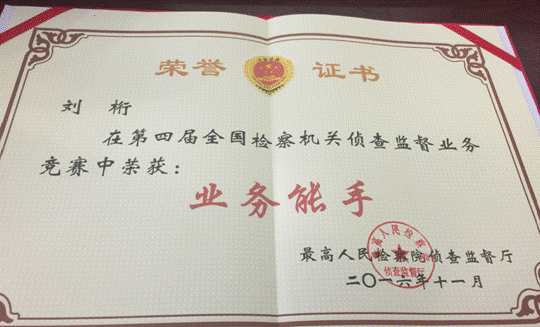 荣誉 证书
刘 桁
在第四届全国检察机关侦查监督业务
竞赛中荣获：
业务能手
最高人民检察院侦查监督厅
二〇一六年十一月
侦查监督厅